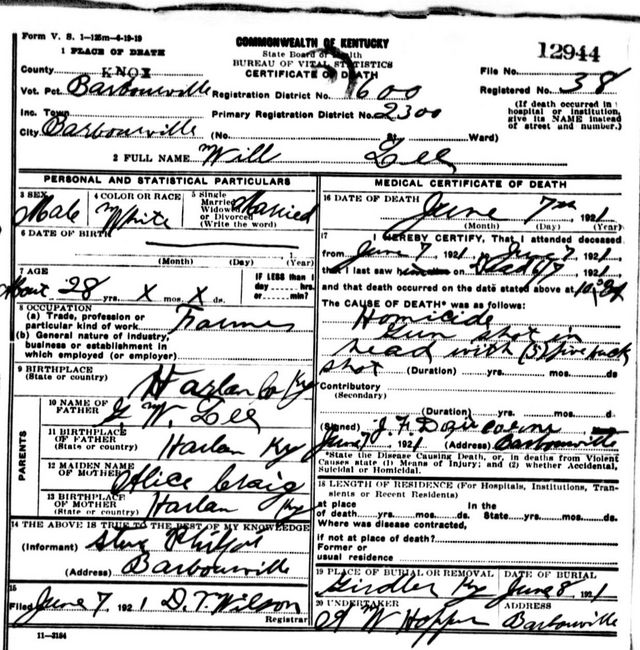 Form V. S. 1-125m-6-19-19
1 PLACE OF DEATH
COMMONWEALTH OF KENTUCKY
State Board of Health
BUREAU OF VITAL STATISTICS
CERTIFICATE OF DEATH
12944
File No.
County KNOX
Vot. Pct. Barbourville
Registration District No. 600
Registered No. 38
Inc. Town
Primary Registration District No. 2300
(If death occurred in hospital or institution, give its NAME instead of street and number.)
City Barbourville (No. St. Ward)
2 FULL NAME Will Lee
PERSONAL AND STATISTICAL PARTICULARS
3 SEX Male
4 COLOR OR RACE White
5 Single Married Widowed or Divorced (Write the word) Married
6 DATE OF BIRTH
(Month) (Day) (Year)
7 AGE
About 28 yrs. X mos. X ds.
IF LESS than 1 day hrs. or min.
8 OCCUPATION
(a) Trade, profession or particular kind of work Farmer
(b) General nature of industry, business or establishment in which employed (or employer)
9 BIRTHPLACE
(State or country) Harlan Co Ky
PARENTS
10 NAME OF FATHER J W. Lee
11 BIRTHPLACE OF FATHER
(State or country) Harlan Ky
12 MAIDEN NAME OF MOTHER Alice Craig
13 BIRTHPLACE OF MOTHER
(State or country) Harlan Ky
14 THE ABOVE IS TRUE TO THE BEST OF MY KNOWLEDGE
(Informant) Steve
(Address) Barbourville
15
Filed June 7 1921 D. T. Wilson
Registrar
11-3184
MEDICAL CERTIFICATE OF DEATH
16 DATE OF DEATH June 7th 1921
(Month) (Day) (Year)
17 I HEREBY CERTIFY, That I attended deceased
from June 7 1921 June 7 1921
that I last saw on 1921
and that death occurred on the date stated above at
The CAUSE OF DEATH* was as follows:
Homicide
Gun shot in
head with (5)
shot (Duration) yrs. mos. ds
Contributory
(Secondary)
(Duration) yrs. mos. ds.
(Signed) J. F.
June 7 1921 (Address) Barbourville
*State the Disease Causing Death, or, in deaths from Violent Causes state (1) Means of Injury; and (2) whether Accidental, Suicidal or Homicidal.
18 LENGTH OF RESIDENCE (For Hospitals, Institutions, Transients or Recent Residents)
at place of death yrs. mos. ds. In the State yrs. mos. ds.
Where was disease contracted,
if not at place of death?
Former or
usual residence
19 PLACE OF BURIAL OR REMOVAL Girdler Ky
DATE OF BURIAL June 8 1921
20 UNDERTAKER W Hopper
ADDRESS Barbourville